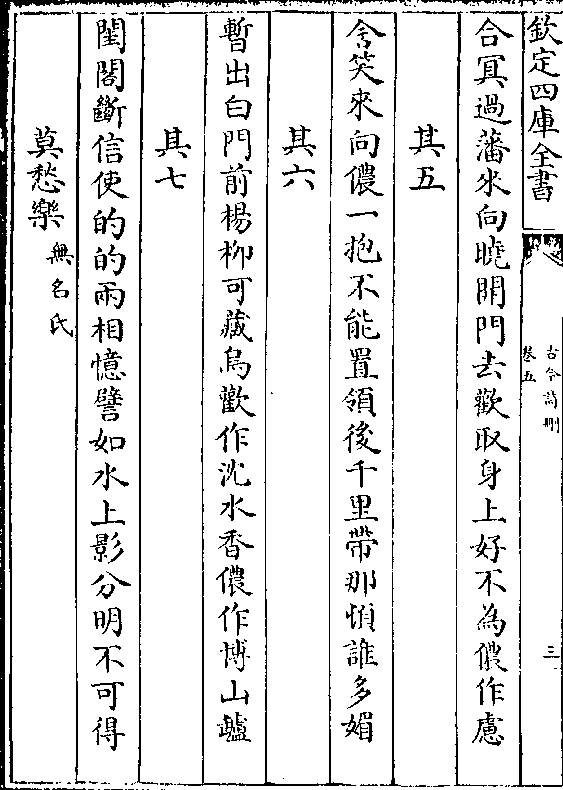 欽定四庫全書
古今詩刪
卷五
三
合冥過藩來向曉開門去歡取身上好不為儂作慮
其五
含笑來向儂一抱不能置領後千里帶那頓誰多媚
其六
暫出白門前楊柳可藏烏歡作沈水香儂作博山爐
其七
閨閤斷信使的的兩相憶譬如水上影分明不可得
莫愁樂 無名氏